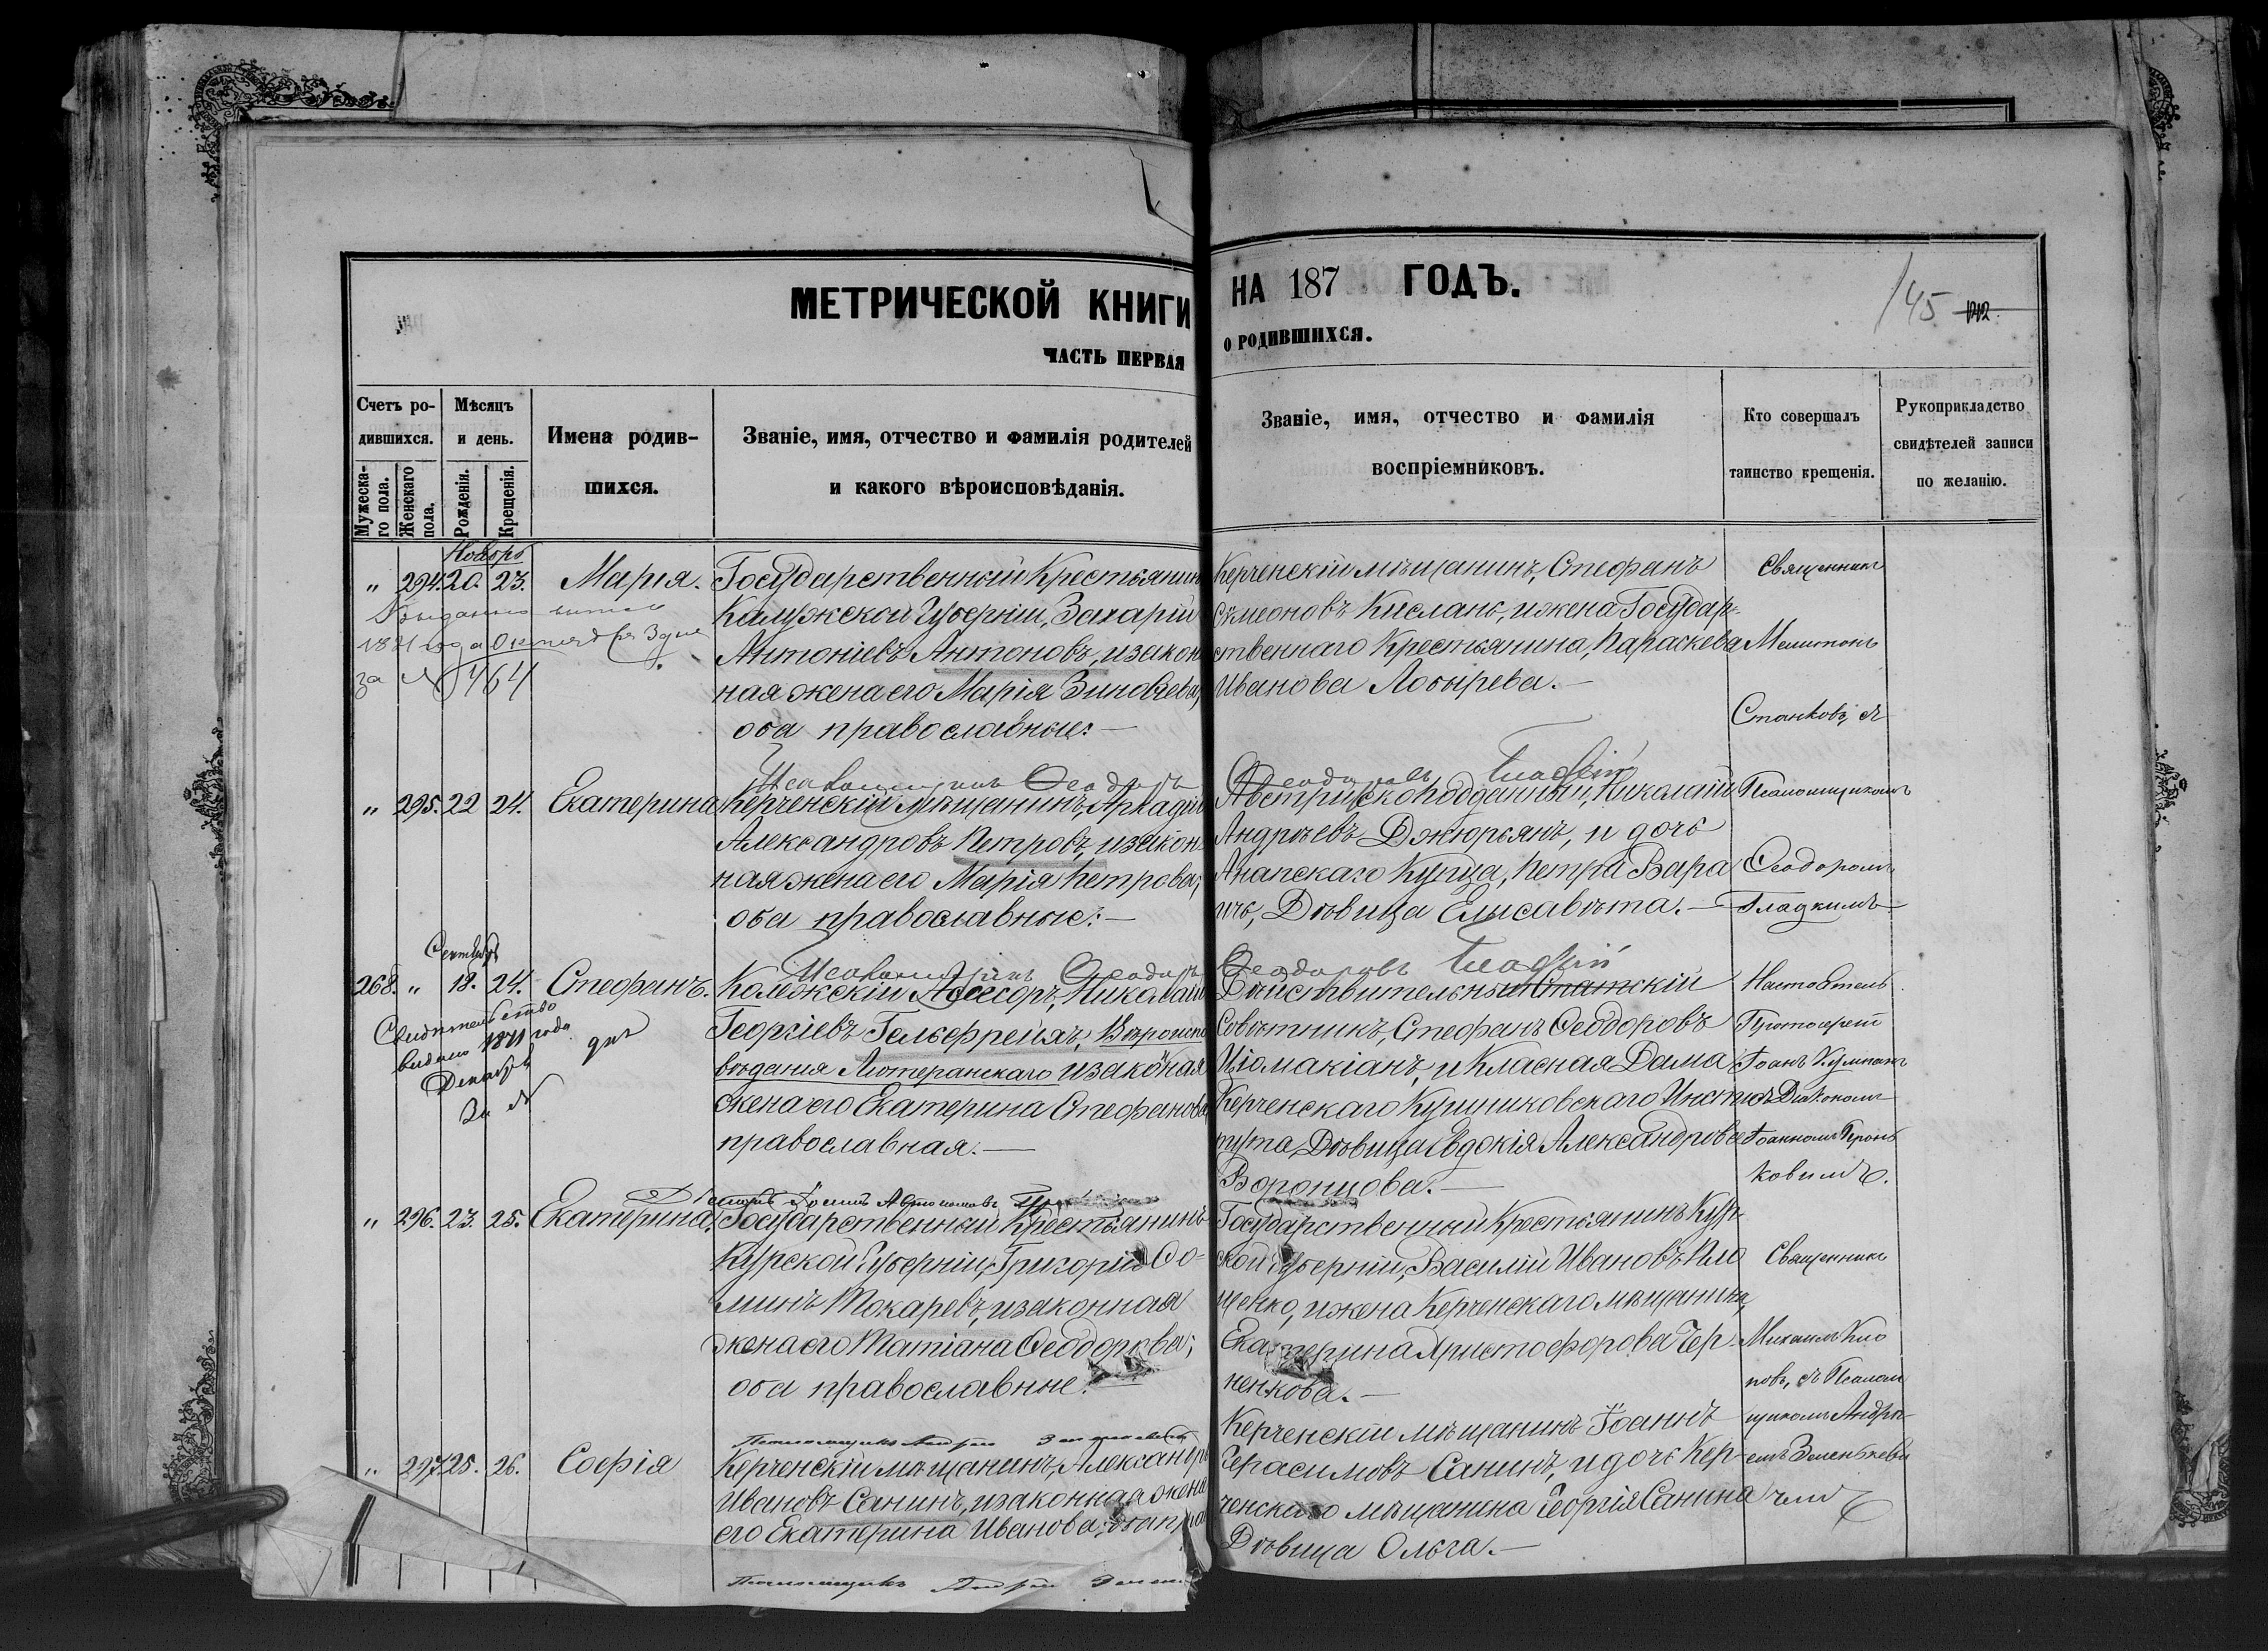 МЕТРИЧЕСКОЙ КНИГИ
НА 187 ГОДЪ.
145
ЧАСТЬ ПЕРВАЯ
О РОДИВШИХСЯ.
Счетъ ро-
дившихся.
Мужеска-
го пола.
Женскаго
пола.
Мѣсяцъ
и день.
Рожденія.
Крещенія.
Имена родив-
шихся.
Званіе, имя, отчество и фамилія родителей
и какого вѣроисповѣданія.
Званіе, имя, отчество и фамилія
воспріемниковъ.
Кто совершалъ
таинство крещенія.
Рукоприкладство
свидѣтелей записи
по желанію.
Ноябрь
" 294. 20. 23. Марія.
1871 года Октября 3 дня
за № 464
Государственный Крестьянинъ
Калужской Губерніи, Захарій
Антоніевъ Антоновъ, и закон
ная жена его Марія Зиновіева,
оба православные.—
Керченскій мѣщанинъ, Стефанъ
Сѵмеоновъ Кислань, и жена Государ-
ственнаго Крестьянина, Параскева
Иванова Лобырева.—
Священникъ
Мелитонъ
Станковъ, съ
" 295. 22 24. Екатерина
Псаломщикъ Ѳеодоръ
Керченскій Мѣщанинъ, Аркадій
Александровъ Петровъ, и закон
ная жена его Марія Петрова;
оба православные:—
Ѳеодоровъ Гладкій
Австрійскоподданный, Николай
Андреевъ Джюрьянъ, и дочь
Анапскаго Купца, Петра Вара
ичь, Дѣвица Елисавета.—
Псаломщикомъ
Ѳеодоромъ
Гладкимъ
Сентябрь
268. " 18. 24. Стефанъ.
Свидѣтельство
видано 1871 года
Декабря дня
За №
Псаломщикъ Ѳеодоръ
Колежскій Асесоръ, Николай
Георгіевъ Гельфрейхъ, Вѣроиспо
вѣданія Лютеранскаго и законная
жена его Екатерина Стефанова,
православная.—
Ѳеодоровъ Гладкій
Дѣйствительный Статскій
Совѣтникъ, Стефанъ Ѳеодоровъ
Ціомакіанъ, и Класная Дама
Керченскаго Кушниковскаго Инсти
тута, Дѣвица Евдокія Александрова
Воронцова.—
Настоятель
Протоіерей
Іоанъ Кумпанъ
съ Діакономъ
Іоанномъ Герон
ковимъ.
" 296. 23. 25. Екатерина.
Государственный Крестьянинъ
Курской Губерніи, Григорій Ѳо-
минъ Токаревъ, и законная
жена его Татіана Ѳеодорова;
оба православные.—
Государственный Крестьянинъ Кур-
ской Губерніи, Василій Ивановъ Ило
щенко, и жена Керченскаго мѣщанина,
Екатерина Христофорова Чер-
ненкова.—
Священникъ
Михаилъ Кио
новъ, съ Псалом
щикомъ Андре-
емъ Зеленкеви
чемъ
" 297. 25. 26. Софія
Псаломщикъ Андрей Зеленкевичъ
Керченскій мѣщанинъ, Александръ
Ивановъ Санинъ, и законная жена
его Екатерина Иванова; оба пра
Керченскій мѣщанинъ Іоаннъ
Герасимовъ Санинъ, и дочь Кер-
ченскаго мѣщанина Георгія Санина
Дѣвица Ольга.—
Псаломщикъ Андрей